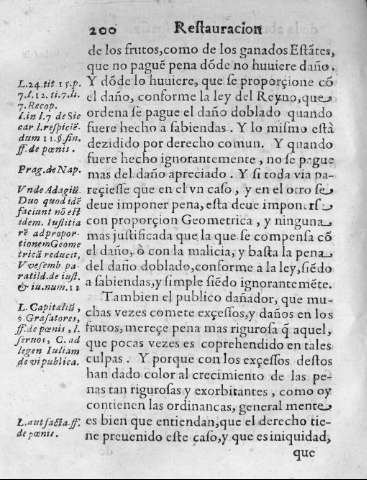 200 Restauracion
de los frutos, como de los ganados Estãtes,
que no paguẽ pena dõde no huuiere daño.
Y dõde lo huuiere, que se proporçione cõ
el daño, conforme la ley del Reyno, que
ordena se pague el daño doblado quando
fuere hecho a sabiendas. Y lo mismo està
dezidido por derecho comun. Y quando
fuere hecho ignorantemente, no se pague
mas del daño apreciado. Y si toda via pa-
reçiesse que en el vn caso, y en el otro se
deue imponer pena, esta deue imponerse
con proporçion Geometrica, y ninguna
mas justificada que la que se compensa cõ
el daño, ò con la malicia, y basta la pena
del daño doblado, conforme a la ley, siẽdo
a sabiendas, y simple siẽdo ignorantemẽte.
Tambien el publico dañador, que mu-
chas vezes comete exçessos, y daños en los
frutos, mereçe pena mas rigurosa q̃ aquel,
que pocas vezes es coprehendido en tales
culpas. Y porque con los exçessos destos
han dado color al crecimiento de las pe-
nas tan rigurosas y exorbitantes, como oy
contienen las ordinancas, general mente
es bien que entiendan, que el derecho tie-
ne preuenido este caso, y que es iniquidad,
que
L. 24. tit 15. p.
7. l. 12. ti. 7. li.
7. Recop.
l. in l. 7 de Sic
ear. l. respiciẽ-
dum 11. §. fin.
ff. de pœnis.
Prag. de Nap.
Vnde Adagiũ.
Duo quod idẽ
faciunt nõ est
idem. Iustitia
rẽ ad propor-
tionem Geome
tricã reducit,
V vesemb. pa
ratild. de iust.
& iu. num. 11
L. Capitaliũ,
§. Grasatores,
ff. de pœnis, l.
seruos, C. ad
legen Iuliam
de vi publica.
L. aut facta ff.
de pœnis.